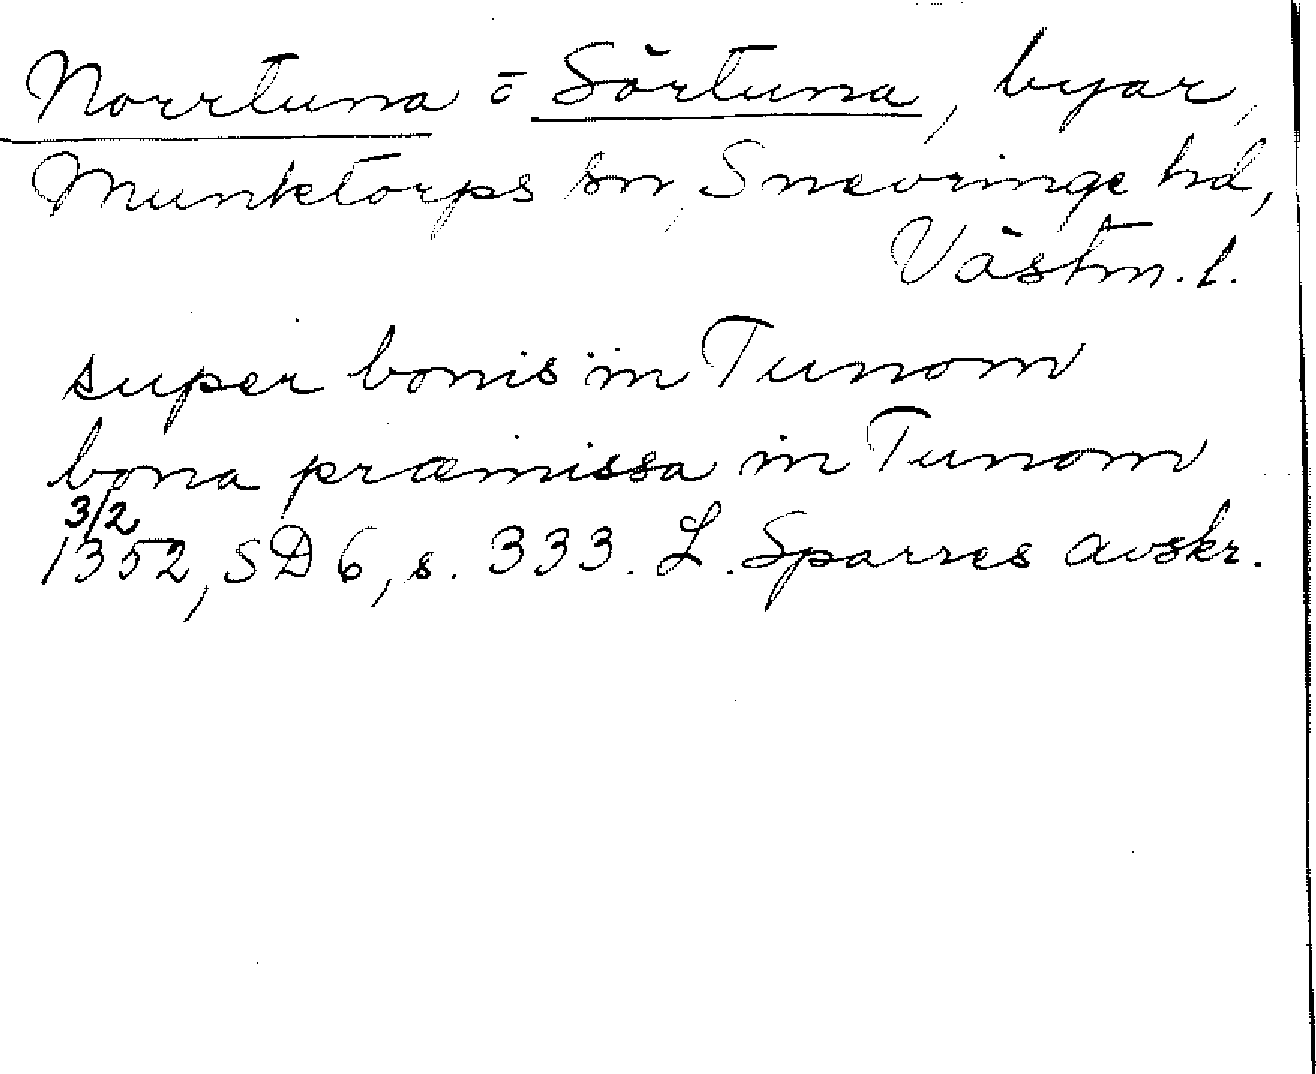 Norrtuna o Sörtuna, byar,
Munktorps sn, Snevringe hd,
Västm. l.
super bonis in Tunom
bona præmissa in Tunom
3/2
1352, SD 6, s. 333. L. Sparres avskr.